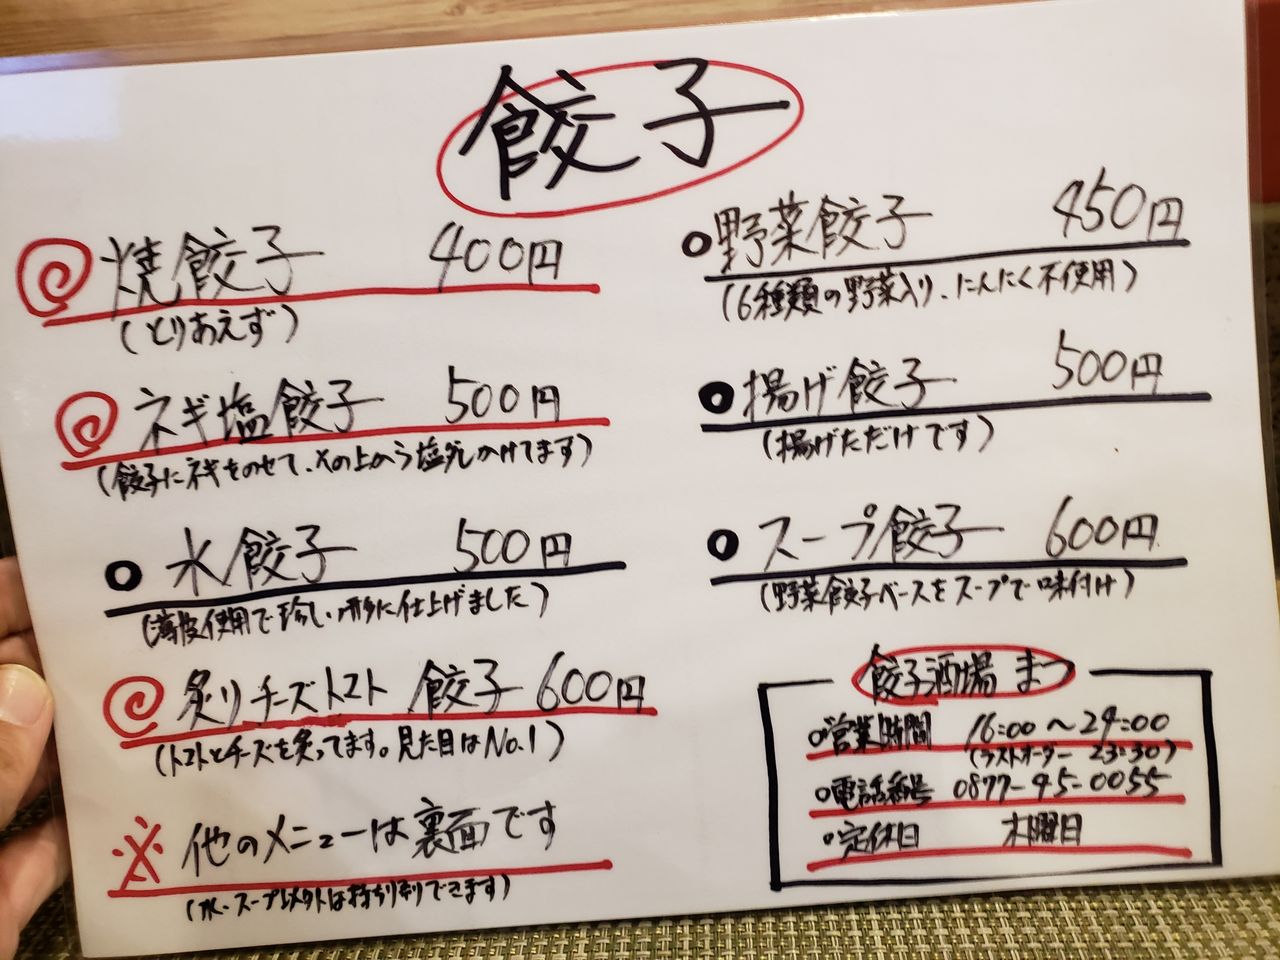 餃子
焼餃子 400円
(とりあえず)
ネギ塩餃子 500円
(餃子にネギをのせて、その上から塩ダレかけてます)
水餃子 500円
(薄皮使用で珍しい形に仕上げました)
炙りチーズトマト餃子 600円
(トマトとチーズを炙ってます。見た目はNo.1)
※ 他のメニューは裏面です
(水・スープ以外は持ち帰りできます)
野菜餃子 450円
(6種類の野菜入り、にんにく不使用)
揚げ餃子 500円
(揚げただけです)
スープ餃子 600円
(野菜餃子ベースをスープで味付け)
餃子酒場 まつ
営業時間 16:00〜24:00
(ラストオーダー 23:30)
電話番号 0877-45-0055
定休日 木曜日